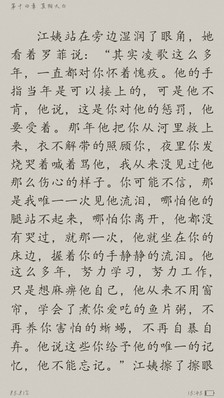 第十六章 真相大白
江姨站在旁边湿润了眼角，她
看着罗菲说：“其实凌歌这么多
年，一直都对你怀着愧疚。他的手
指当年是可以接上的，可是他不
肯，他说，这是你对他的惩罚，他
要受着。那年他把你从河里救上
来，衣不解带的照顾你，夜里你发
烧哭着喊着骂他，我从来没见过他
那么伤心的样子。你可能不信，那
是我唯一一次见他流泪，哪怕他的
腿站不起来，哪怕你离开，他都没
有哭过，就那一次，他就坐在你的
床边，握着你的手静静的流泪。他
这么多年，努力学习，努力工作，
只是想麻痹他自己，他从来不用窗
帘，学会了煮你爱吃的鱼片粥，不
再养你害怕的蜥蜴，不再自暴自
弃。他说这些你给于他的唯一的记
忆，他不能忘记。”江姨擦了擦眼
15:45